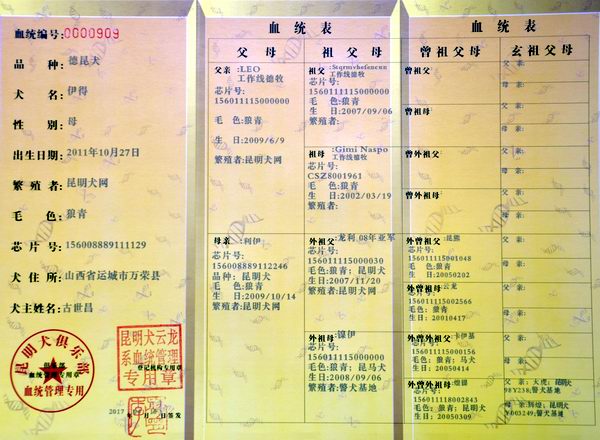 血统编号:0000909
品 种:德昆犬
犬 名:伊得
性 别:母
出生日期:2011年10月27日
繁 殖 者:昆明犬网
毛 色:狼青
芯 片 号:156008889111129
犬 住 所:山西省运城市万荣县
犬主姓名:古世昌
昆明犬俱乐部
血统管理专用
昆明犬云龙
系血统管理
专用章
登记机构专用章
2017
血 统 表
父 母
祖 父 母
父亲:LEO
工作线德牧
芯片号:
156011115000000
毛 色:狼青
生 日:2009/6/9
繁殖者:昆明犬网
母亲:利伊
芯片号:
156008889112246
品种:昆明犬
毛 色:狼青
生 日:2009/10/14
繁殖者:昆明犬网
祖父:
工作线德牧
芯片号:
156011115000000
毛 色:狼青
生 日:2007/09/06
繁殖者:
祖母:Gimi Naspo
工作线德牧
芯片号:
CSZ8001961
毛 色:狼青
生 日:2002/03/19
繁殖者:
外祖父:龙利 08年亚军
芯片号:
156011115000030
毛色:狼青;昆明犬
生 日:2007/11/20
繁殖者:昆明犬网
外祖母:镍伊
芯片号:
156011115000000
毛色:狼青;昆马犬
生 日:2008/09/06
繁殖者:警犬基地
血 统 表
曾祖父母
玄祖父母
曾祖父
曾祖母
曾外祖父
曾外祖母
外曾祖父:昆熊
芯片号:
156115111001048
毛色:狼青;昆明犬
生 日:20050202
外曾祖母:云龙
芯片号:
156115111002566
毛色:狼青
生 日:20010417
外曾外祖父:卡伊基
芯片号:
156115111000844
毛色:狼青;马犬
生 日:20050414
外曾外祖母:煌镍
芯片号:
156111118002843
毛色:狼青;昆明犬
生 日:20050309
父 亲:
母 亲:
父 亲:
母 亲:
父 亲:
母 亲:
父 亲:
母 亲:
父 亲:
母 亲:
父 亲:
母 亲:
父 亲:
母 亲:
父 亲:天虎;昆明犬
98Y238;警犬基地
母 亲:辉煌;昆明犬
Y003249;警犬基地